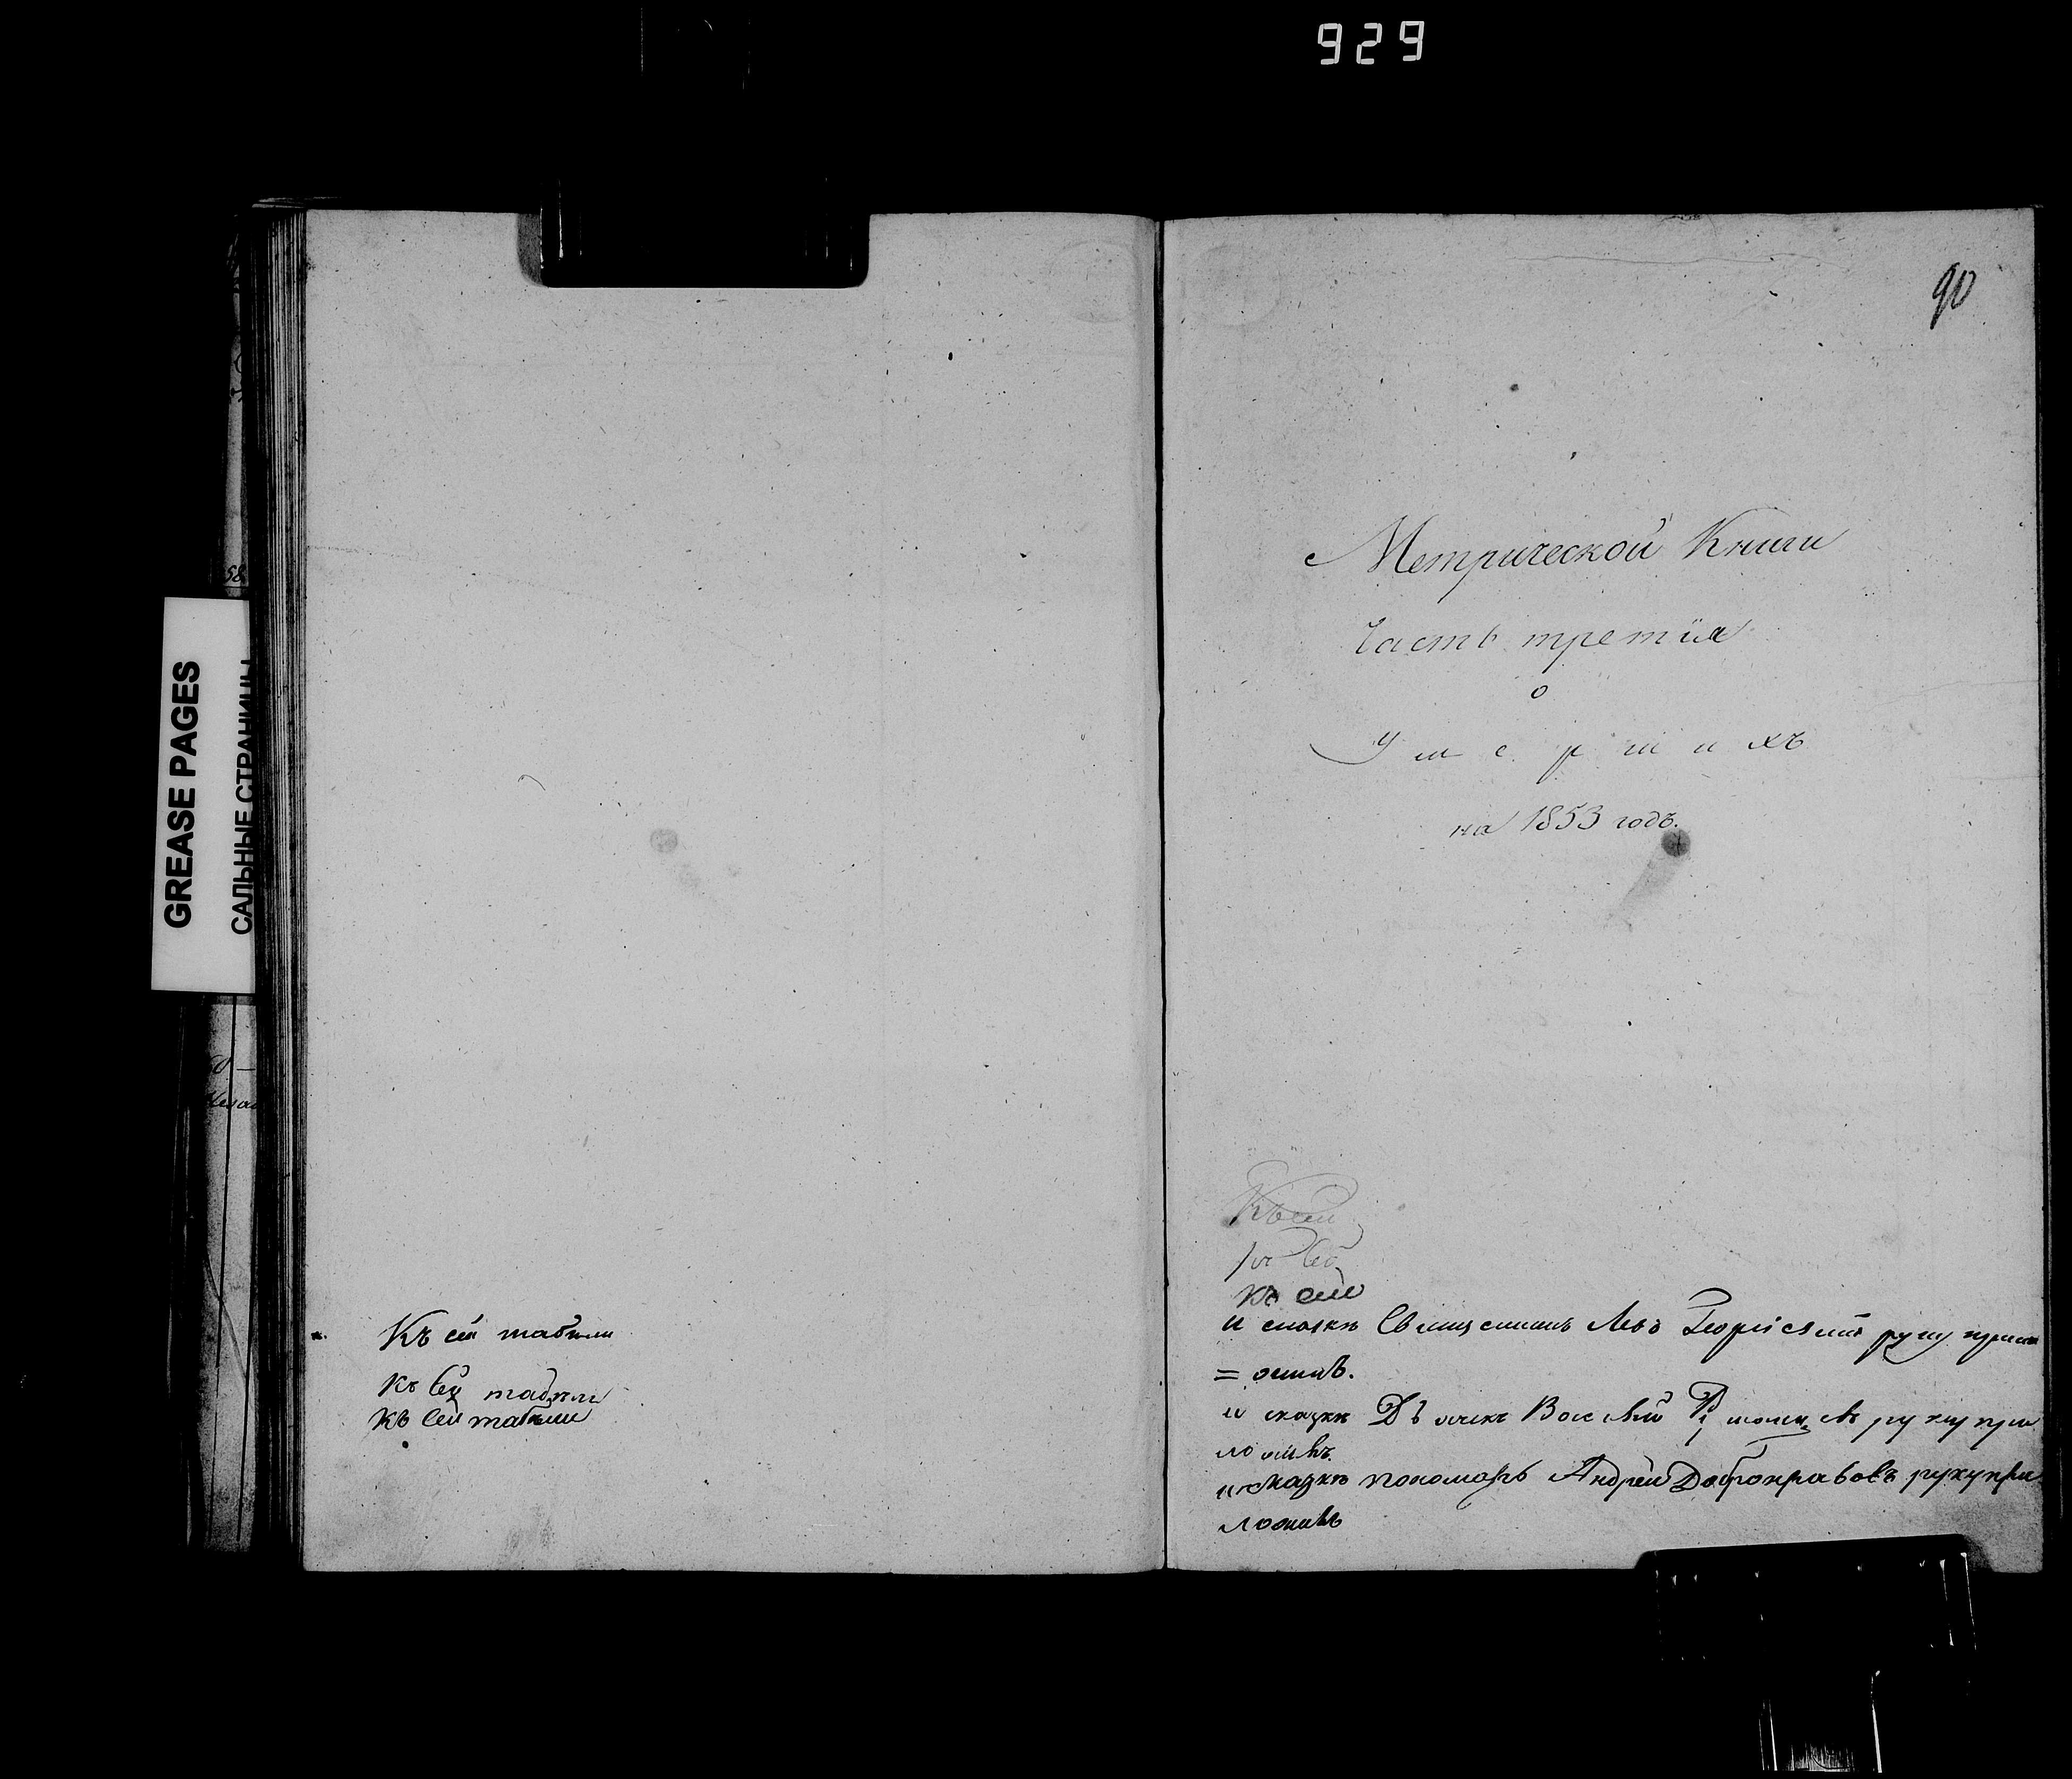 929
90
GREASE PAGES
САЛЬНЫЕ СТРАНИЦЫ
58
Къ сей табели
Къ сей табели
Къ сей табели
Метрической Книги
Часть третїя
о
Умершихъ
на 1853 годъ.
Къ сей
Къ сей
Къ сей
и сказки Священникъ Левъ руку прил
= ожилъ.
и сказки Дьячекъ Василий руку при
ложилъ.
и сказки пономарь Андрей Добронравовъ руку при
ложилъ